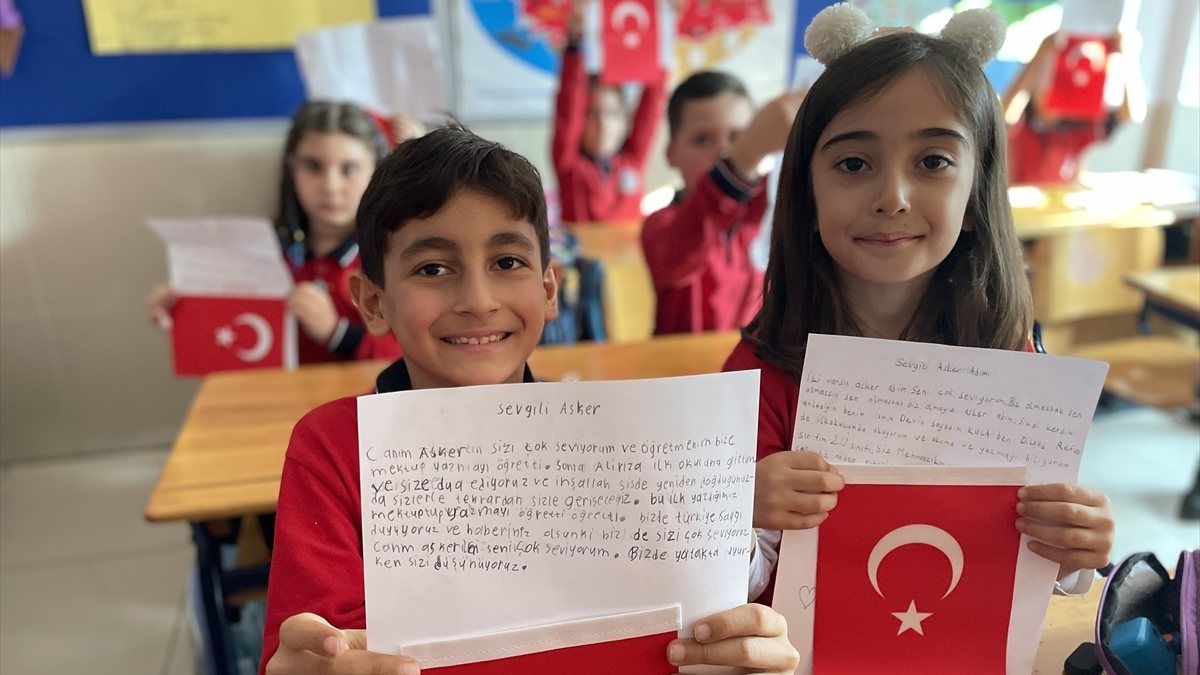 Sevgili Asker
Canım Askerem sizi çok seviyorum ve öğretmenim bize
mektup yazmayı öğretti. Sonra Alirıza ilk okuluna gittım
ve size dua ediyoruz ve inşallah
da sizlerle tekrardan sizle
bu ilk yazdığımız
mektup yazmayı öğretti öğretti. bizde türkiye saygı
duyuyoruz ve haberiniz olsunki biz de sizi çok seviyoruz
canım askerim seni çok seviyorum. Bizde yatakta uyur-
ken sizi düşünüyoruz.
Sevgili Asker Abim
İyi varsın asker abim. Seni çok seviyorum. Biz olmassak sen
olmassın sen olmassan biz olmayız asker abim. Şimdi kendimi
benim ismim
de ilkokulunda okuyorum ve okuma ve yazmayı biliyorum
sınıfı. Siz